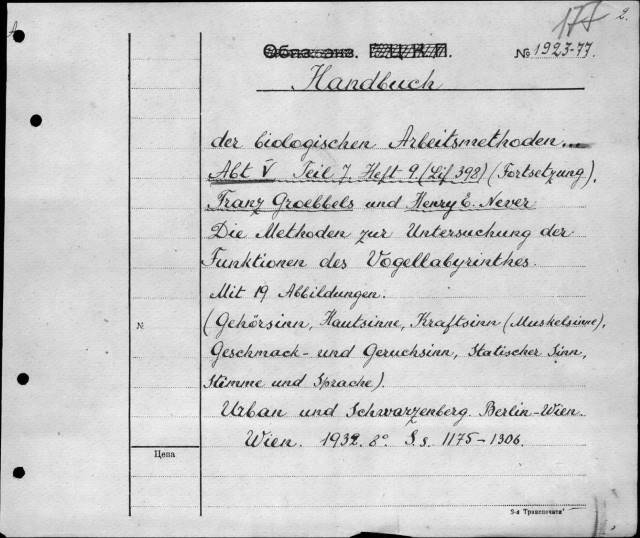 177 2.
№ 1923-77.
Handbuch
der biologischen Arbeitsmethoden...
Abt V Teil 7, Heft 9 (Lif 398) (Fortsetzung),
Franz Groebbels und Henry E. Never
Die Methoden zur Untersuchung der
Funktionen des Vogellabyrinthes.
Mit 19 Abbildungen.
№
(Gehörsinn, Hautsinne, Kraftsinn (Muskelsinne),
Geschmack- und Geruchsinn, Statischer Sinn,
Stimme und Sprache).
Urban und Schwarzenberg. Berlin-Wien.
Wien. 1932. 8° S.s. 1175-1306.
Цена